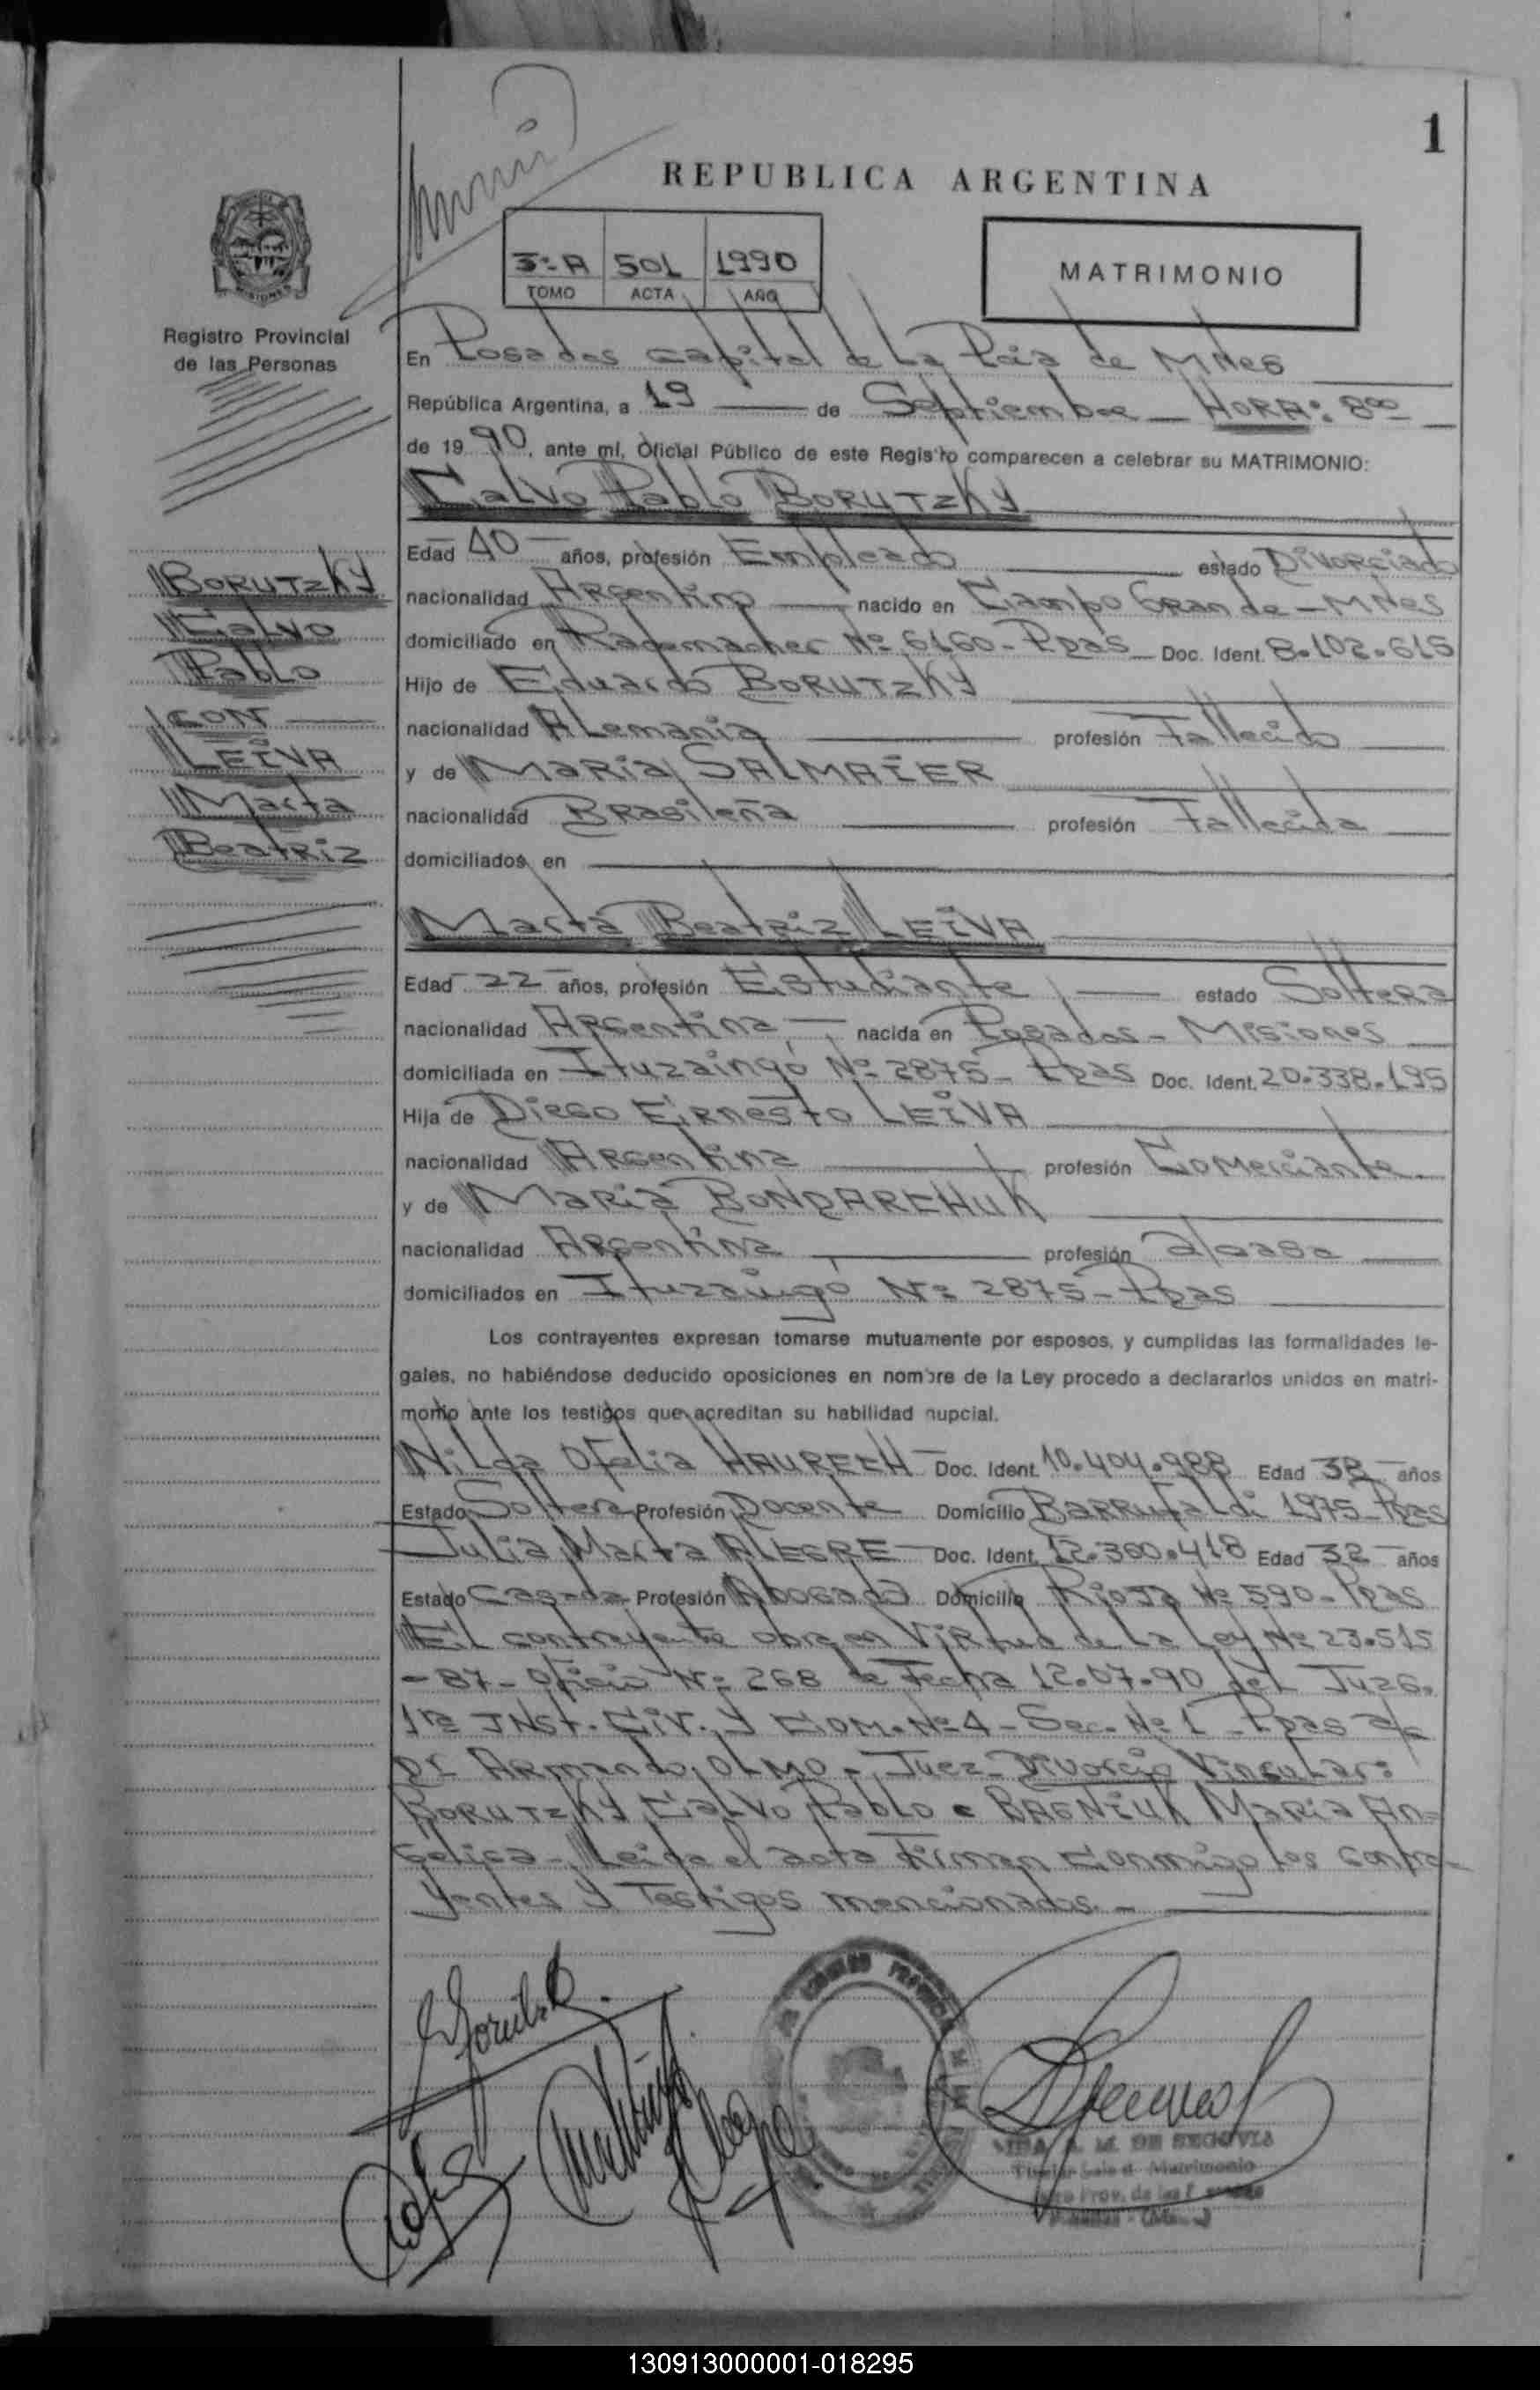 1
REPUBLICA ARGENTINA
3º-A 501 1990
TOMO ACTA AÑO
MATRIMONIO
MISIONES
Registro Provincial
de las Personas
En Posadas Capital de La Pcia de MNes
República Argentina, a 19 de Septiembre HORA: 8ºº
de 1990, ante mí, Oficial Público de este Registro comparecen a celebrar su MATRIMONIO:
Calvo Pablo BORUTZKY
Edad 40 años, profesión Empleado estado Divorciado
nacionalidad Argentino nacido en Campo Grande - MNes
domiciliado en Rademacher Nº 6160 - Pdas Doc. Ident. 8.102.615
Hijo de Eduardo BORUTZKY
nacionalidad Alemania profesión Fallecido
y de Maria SALMAIER
nacionalidad Brasileña profesión Fallecida
domiciliados en
BORUTZKY
Calvo
Pablo
CON
LEIVA
Marta
Beatriz
Marta Beatriz LEIVA
Edad 22 años, profesión Estudiante estado Soltera
nacionalidad Argentina nacida en Posadas - Misiones
domiciliada en Ituzaingó Nº 2875 - Pdas Doc. Ident. 20.338.195
Hija de Diego Ernesto LEIVA
nacionalidad Argentina profesión Comerciante
y de Maria BONDARCHUK
nacionalidad Argentina profesión a/casa
domiciliados en Ituzaingó Nº 2875 - Pdas
Los contrayentes expresan tomarse mutuamente por esposos, y cumplidas las formalidades le-
gales, no habiéndose deducido oposiciones en nombre de la Ley procedo a declararlos unidos en matri-
monio ante los testigos que acreditan su habilidad nupcial.
Nilda Ofelia Doc. Ident. 10.404.988 Edad 38 años
Estado Soltera Profesión Docente Domicilio Barrufaldi 1975 - Pdas
Julia Marta ALEGRE Doc. Ident. 12.360.418 Edad 32 años
Estado Casada Profesión Abogada Domicilio Rioja Nº 590 - Pdas
El contrayente obra en Virtud de La Ley Nº 23.515
- 87 - Oficio Nº 268 de Fecha 12.07.90 del Juzg.
1ra INST. CIV. Y COM. Nº 4 - Sec. Nº 1 - Pdas a/c
Dr Armando OLMO - Juez - Divorcio Vincular:
BORUTZKY Calvo Pablo c BAGNIUK Maria An-
gelica - Leida el acta Firman Conmigo los contra-
yentes y Testigos mencionados. -
A. M. DE SEGOVIA
Titular Sala d Matrimonio
Prov. de las P
130913000001-018295